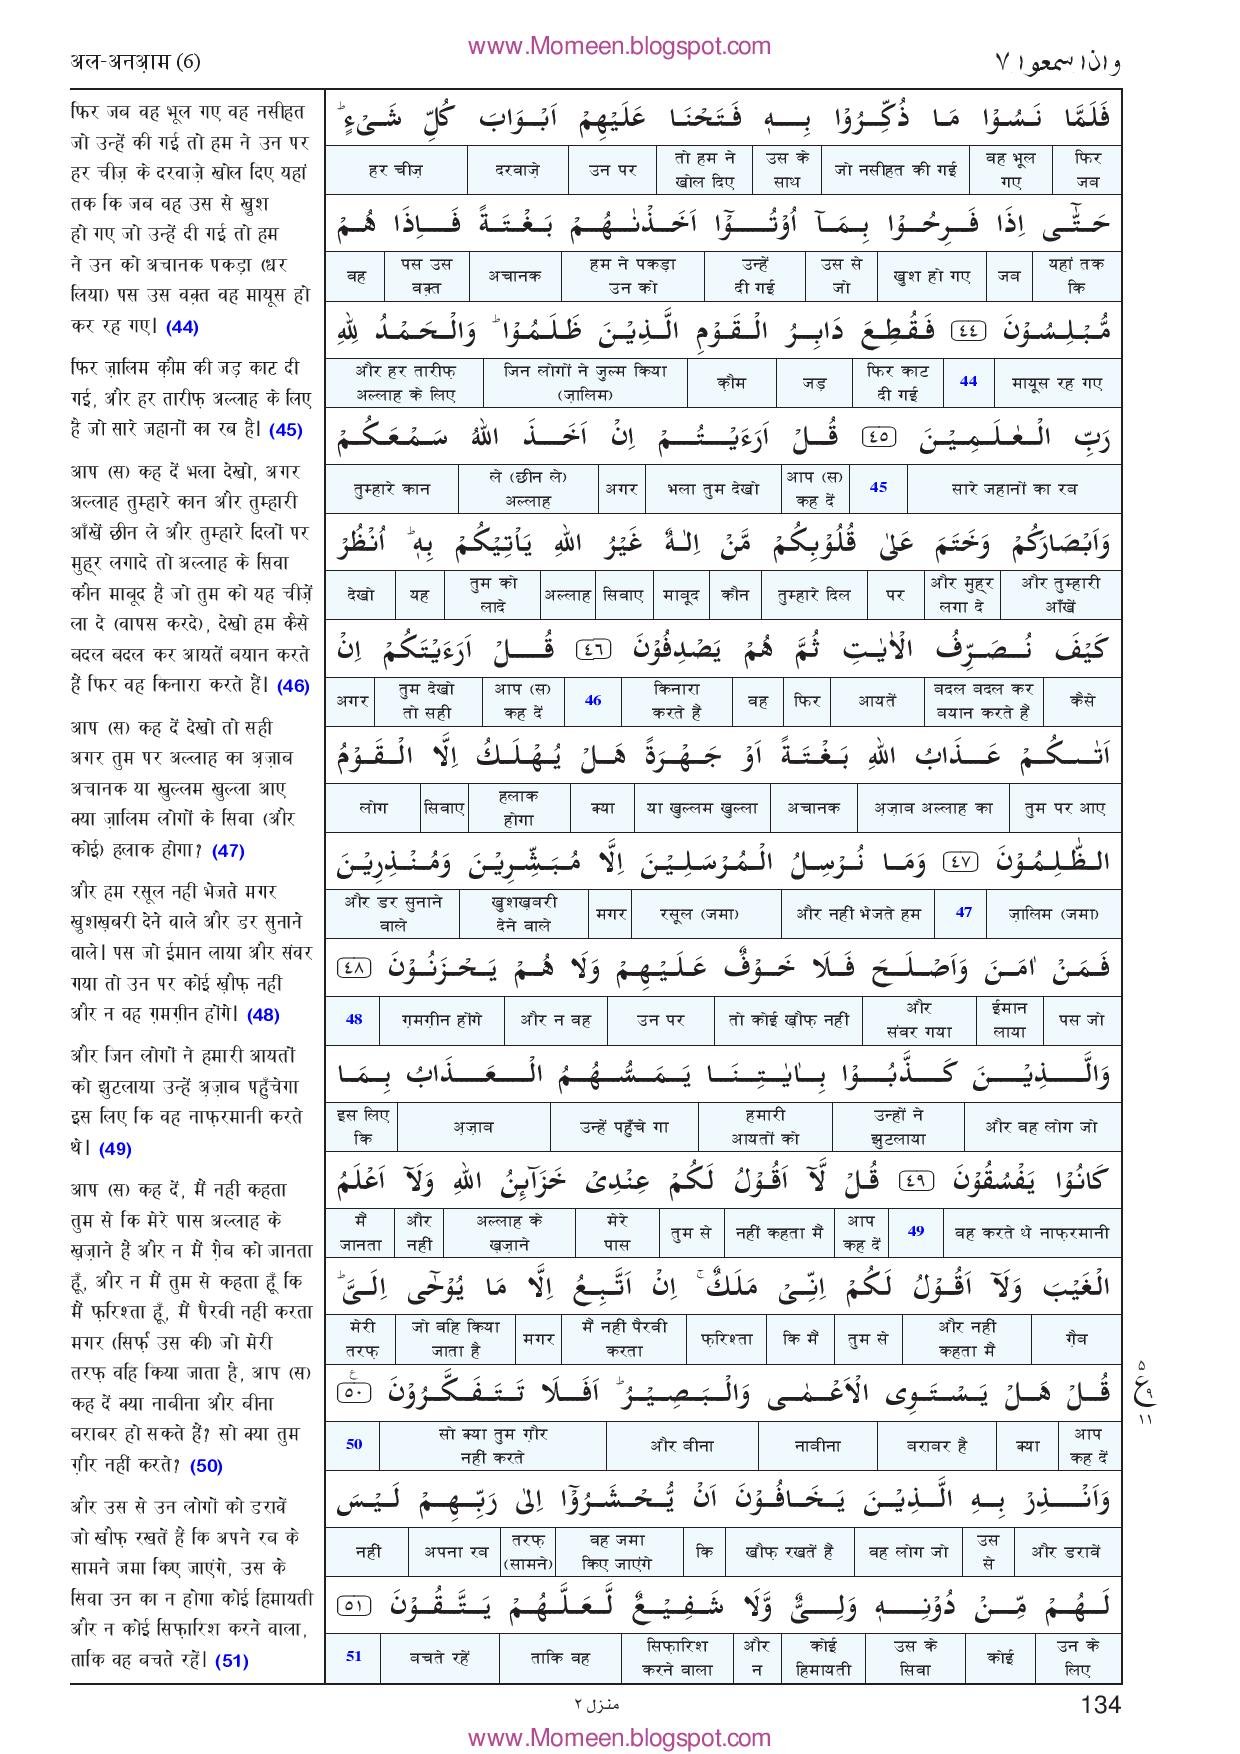 www.Momeen.blogspot.com
अल-अनआ़म (6)
واذا سمعوا ٧
फिर जब वह भूल गए वह नसीहत
जो उन्हें की गई तो हम ने उन पर
हर चीज़ के दरवाज़े खोल दिए यहां
तक कि जब वह उस से खुश
हो गए जो उन्हें दी गई तो हम
ने उन को अचानक पकड़ा (धर
लिया) पस उस वक़्त वह मायूस हो
कर रह गए। (44)
फिर ज़ालिम क़ौम की जड़ काट दी
गई, और हर तारीफ़ अल्लाह के लिए
है जो सारे जहानों का रब है। (45)
आप (स) कह दें भला देखो, अगर
अल्लाह तुम्हारे कान और तुम्हारी
आँखें छीन ले और तुम्हारे दिलों पर
मुह्र लगादे तो अल्लाह के सिवा
कौन माबूद है जो तुम को यह चीज़ें
ला दे (वापस करदे), देखो हम कैसे
बदल बदल कर आयतें बयान करते
हैं फिर वह किनारा करते हैं। (46)
आप (स) कह दें देखो तो सही
अगर तुम पर अल्लाह का अ़ज़ाब
अचानक या खुल्लम खुल्ला आए
क्या ज़ालिम लोगों के सिवा (और
कोई) हलाक होगा? (47)
और हम रसूल नहीं भेजते मगर
खुशख़बरी देने वाले और डर सुनाने
वाले। पस जो ईमान लाया और संवर
गया तो उन पर कोई ख़ौफ़ नहीं
और न वह ग़मगीन होंगे। (48)
और जिन लोगों ने हमारी आयतों
को झुटलाया उन्हें अ़ज़ाब पहुँचेगा
इस लिए कि वह नाफ़रमानी करते
थे। (49)
आप (स) कह दें, मैं नहीं कहता
तुम से कि मेरे पास अल्लाह के
ख़ज़ाने हैं और न मैं ग़ैब को जानता
हूँ, और न मैं तुम से कहता हूँ कि
मैं फ़रिश्ता हूँ, मैं पैरवी नहीं करता
मगर (सिर्फ़ उस की) जो मेरी
तरफ़ वहि किया जाता है, आप (स)
कह दें क्या नाबीना और बीना
बराबर हो सकते हैं? सो क्या तुम
ग़ौर नहीं करते? (50)
और उस से उन लोगों को डरावें
जो ख़ौफ़ रखतें हैं कि अपने रब के
सामने जमा किए जाएंगे, उस के
सिवा उन का न होगा कोई हिमायती
और न कोई सिफ़ारिश करने वाला,
ताकि वह बचते रहें। (51)
فَلَمَّا نَسُوْا مَا ذُكِّرُوْا بِهٖ فَتَحْنَا عَلَيْهِمْ اَبْوَابَ كُلِّ شَىْءٍ ؕ
फिर जब | वह भूल गए | जो नसीहत की गई | उस के साथ | तो हम ने खोल दिए | उन पर | दरवाज़े | हर चीज़
حَتّٰٓى اِذَا فَرِحُوْا بِمَآ اُوْتُوْٓا اَخَذْنٰهُمْ بَغْتَةً فَاِذَا هُمْ
यहां तक कि | जब | खुश हो गए | उस से जो | उन्हें दी गई | हम ने पकड़ा उन को | अचानक | पस उस वक़्त | वह
مُّبْلِسُوْنَ ٤٤ فَقُطِعَ دَابِرُ الْقَوْمِ الَّذِيْنَ ظَلَمُوْا ؕ وَالْحَمْدُ لِلّٰهِ
मायूस रह गए | 44 | फिर काट दी गई | जड़ | क़ौम | जिन लोगों ने जुल्म किया (ज़ालिम) | और हर तारीफ़ अल्लाह के लिए
رَبِّ الْعٰلَمِيْنَ ٤٥ قُلْ اَرَءَيْتُمْ اِنْ اَخَذَ اللّٰهُ سَمْعَكُمْ
सारे जहानों का रब | 45 | आप (स) कह दें | भला तुम देखो | अगर | ले (छीन ले) अल्लाह | तुम्हारे कान
وَاَبْصَارَكُمْ وَخَتَمَ عَلٰى قُلُوْبِكُمْ مَّنْ اِلٰهٌ غَيْرُ اللّٰهِ يَاْتِيْكُمْ بِهٖ ؕ اُنْظُرْ
और तुम्हारी आँखें | और मुह्र लगा दे | पर | तुम्हारे दिल | कौन | माबूद | सिवाए | अल्लाह | तुम को लादे | यह | देखो
كَيْفَ نُصَرِّفُ الْاٰيٰتِ ثُمَّ هُمْ يَصْدِفُوْنَ ٤٦ قُلْ اَرَءَيْتَكُمْ اِنْ
कैसे | बदल बदल कर बयान करते हैं | आयतें | फिर | वह | किनारा करते हैं | 46 | आप (स) कह दें | तुम देखो तो सही | अगर
اَتٰىكُمْ عَذَابُ اللّٰهِ بَغْتَةً اَوْ جَهْرَةً هَلْ يُهْلَكُ اِلَّا الْقَوْمُ
तुम पर आए | अ़ज़ाब अल्लाह का | अचानक | या खुल्लम खुल्ला | क्या | हलाक होगा | सिवाए | लोग
الظّٰلِمُوْنَ ٤٧ وَمَا نُرْسِلُ الْمُرْسَلِيْنَ اِلَّا مُبَشِّرِيْنَ وَمُنْذِرِيْنَ
ज़ालिम (जमा) | 47 | और नहीं भेजते हम | रसूल (जमा) | मगर | खुशख़बरी देने वाले | और डर सुनाने वाले
فَمَنْ اٰمَنَ وَاَصْلَحَ فَلَا خَوْفٌ عَلَيْهِمْ وَلَا هُمْ يَحْزَنُوْنَ ٤٨
पस जो | ईमान लाया | और संवर गया | तो कोई ख़ौफ़ नहीं | उन पर | और न वह | ग़मगीन होंगे | 48
وَالَّذِيْنَ كَذَّبُوْا بِاٰيٰتِنَا يَمَسُّهُمُ الْعَذَابُ بِمَا
और वह लोग जो | उन्हों ने झुटलाया | हमारी आयतों को | उन्हें पहुँचे गा | अ़ज़ाब | इस लिए कि
كَانُوْا يَفْسُقُوْنَ ٤٩ قُلْ لَّآ اَقُوْلُ لَكُمْ عِنْدِىْ خَزَآئِنُ اللّٰهِ وَلَآ اَعْلَمُ
वह करते थे नाफ़रमानी | 49 | आप कह दें | नहीं कहता मैं | तुम से | मेरे पास | अल्लाह के ख़ज़ाने | और नहीं | मैं जानता
الْغَيْبَ وَلَآ اَقُوْلُ لَكُمْ اِنِّىْ مَلَكٌ ۚ اِنْ اَتَّبِعُ اِلَّا مَا يُوْحٰٓى اِلَىَّ ؕ
ग़ैब | और नहीं कहता मैं | तुम से | कि मैं | फ़रिश्ता | मैं नहीं पैरवी करता | मगर | जो वहि किया जाता है | मेरी तरफ़
قُلْ هَلْ يَسْتَوِى الْاَعْمٰى وَالْبَصِيْرُ ؕ اَفَلَا تَتَفَكَّرُوْنَ ٥٠
ع ٥ ٩ ١١
आप कह दें | क्या | बराबर है | नाबीना | और बीना | सो क्या तुम ग़ौर नहीं करते | 50
وَاَنْذِرْ بِهِ الَّذِيْنَ يَخَافُوْنَ اَنْ يُّحْشَرُوْٓا اِلٰى رَبِّهِمْ لَيْسَ
और डरावें | उस से | वह लोग जो | ख़ौफ़ रखतें हैं | कि | वह जमा किए जाएंगे | तरफ़ (सामने) | अपना रब | नहीं
لَهُمْ مِّنْ دُوْنِهٖ وَلِىٌّ وَّلَا شَفِيْعٌ لَّعَلَّهُمْ يَتَّقُوْنَ ٥١
उन के लिए | कोई | उस के सिवा | कोई हिमायती | और न | सिफ़ारिश करने वाला | ताकि वह | बचते रहें | 51
منزل ٢
134
www.Momeen.blogspot.com